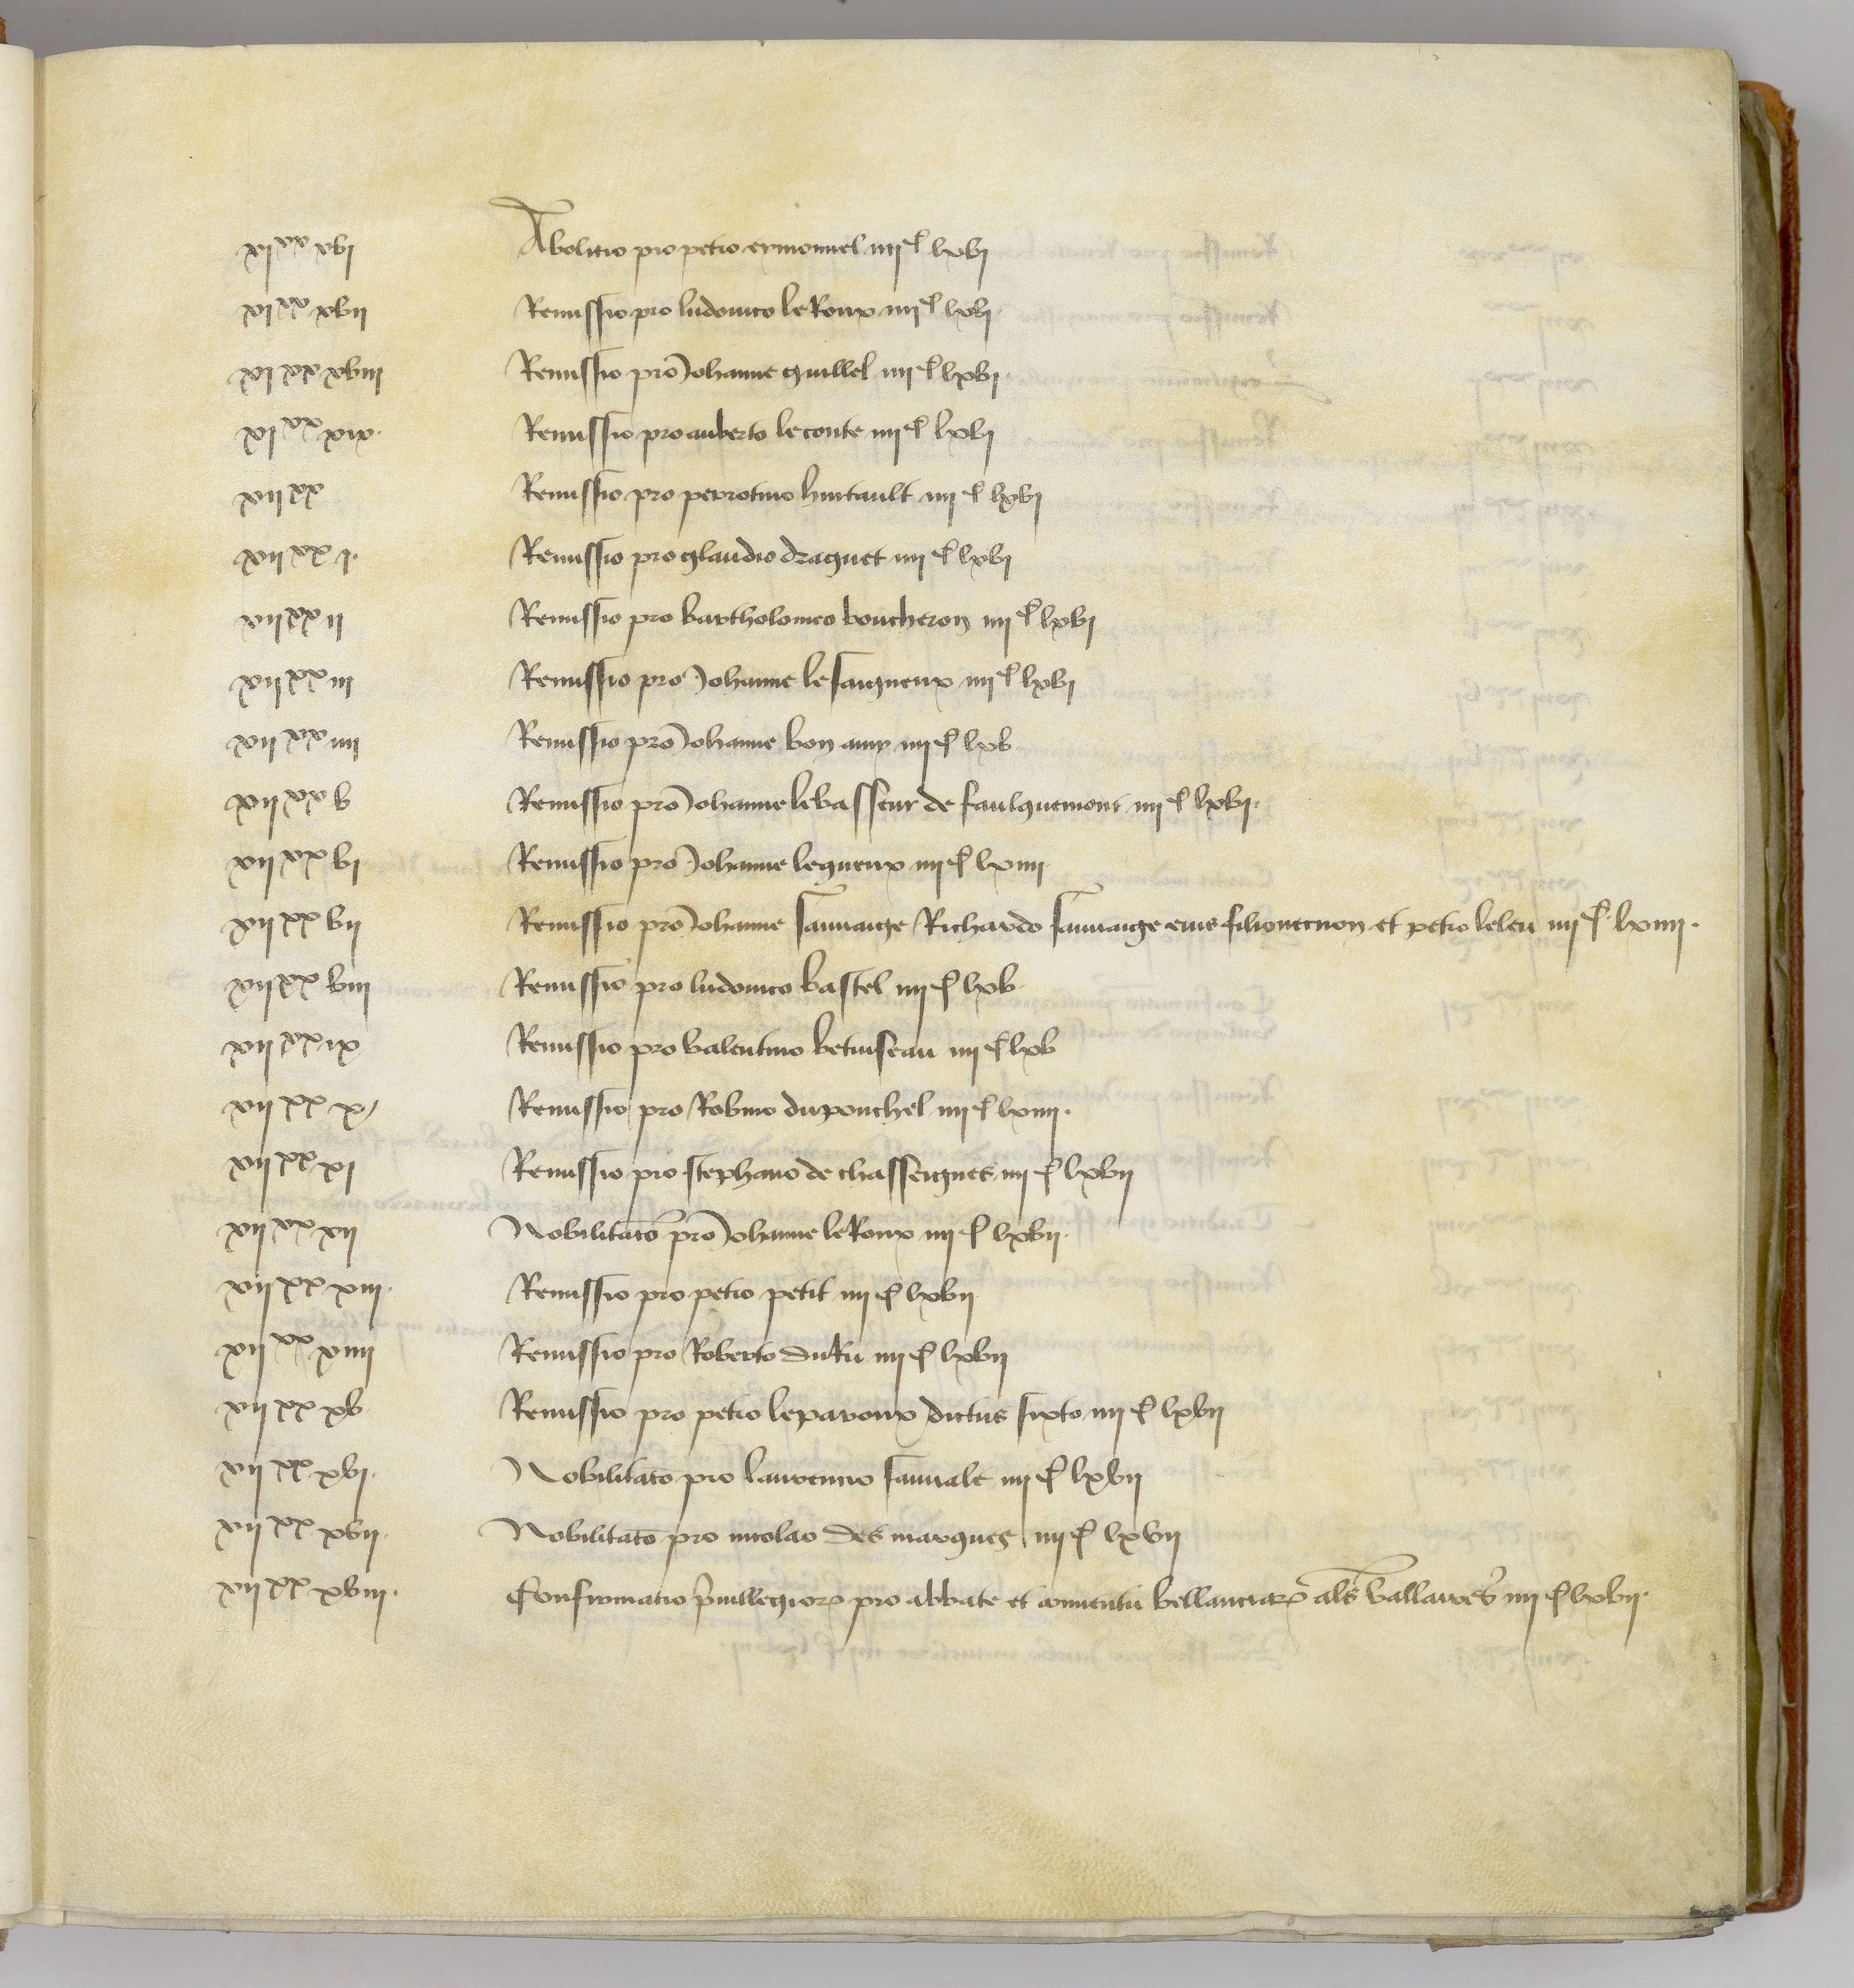 xi xx xvi Abolitio pro petro ermonnel iiii c lxvi
xi xx xvii Remissio pro ludovico le Roux iiii c lxvi
xi xx xviii Remissio pro Johanne quillel iiii c lxvi
xi xx xix. Remissio pro auberto leconte iiii c lxvi
xii xx Remissio pro perrotino huitault iiii c lxvi
xii xx i. Remissio pro glaudio draguet iiii c lxvi
xii xx ii Remissio pro bartholomeo boucheron iiii c lxvi
xii xx iii Remissio pro Johanne lesaigneux iiii c lxvi
xii xx iiii Remissio pro Johanne bon amy iiii c lxv
xii xx v Remissio pro Johanne levasseur de faulquemont iiii c lxvi.
xii xx vi Remissio pro Johanne lequeux iiii c lxiiii
xii xx vii Remissio pro Johanne sauvaige Richardo sauvaige eius filio necnon et petro leleu iiii c lxiiii.
xii xx viii Remissio pro ludovico bastel iiii c lxv
xii xx ix Remissio pro valentino betuiseau iiii c lxv
xii xx x Remissio pro Robino duponchel iiii c lxiiii.
xii xx xi Remissio pro stephano de chasseignes iiii c lxvii
xii xx xii Nobilitatio pro Johanne le Roux iiii c lxvii.
xii xx xiii. Remissio pro petro petit iiii c lxvii
xii xx xiiii Remissio pro Roberto du Ru iiii c lxvii
xii xx xv Remissio pro petro leparoux dictus sixto iiii c lxvii
xii xx xvi. Nobilitatio pro laurencio sauvale iiii c lxvii
xii xx xvii. Nobilitatio pro nicolao des marques iiii c lxvii
xii xx xviii. Confirmatio privillegiorum pro abbate et conventu bellanciarum als vallaces iiii c lxvii.